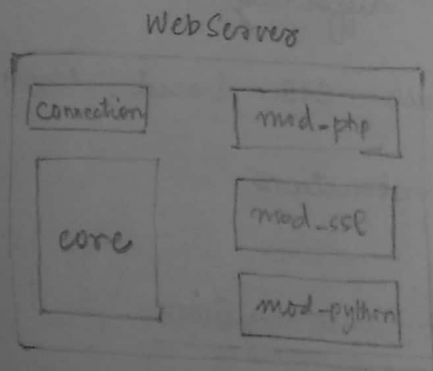 WebServer
Connection
mod_php
core
mod_ssl
mod_python